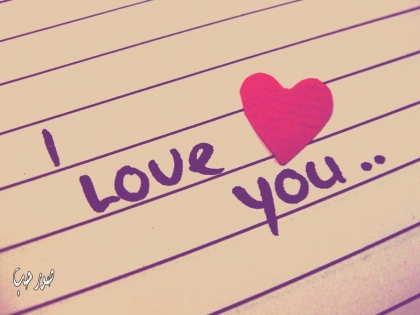 I
Love
you..
صور حب